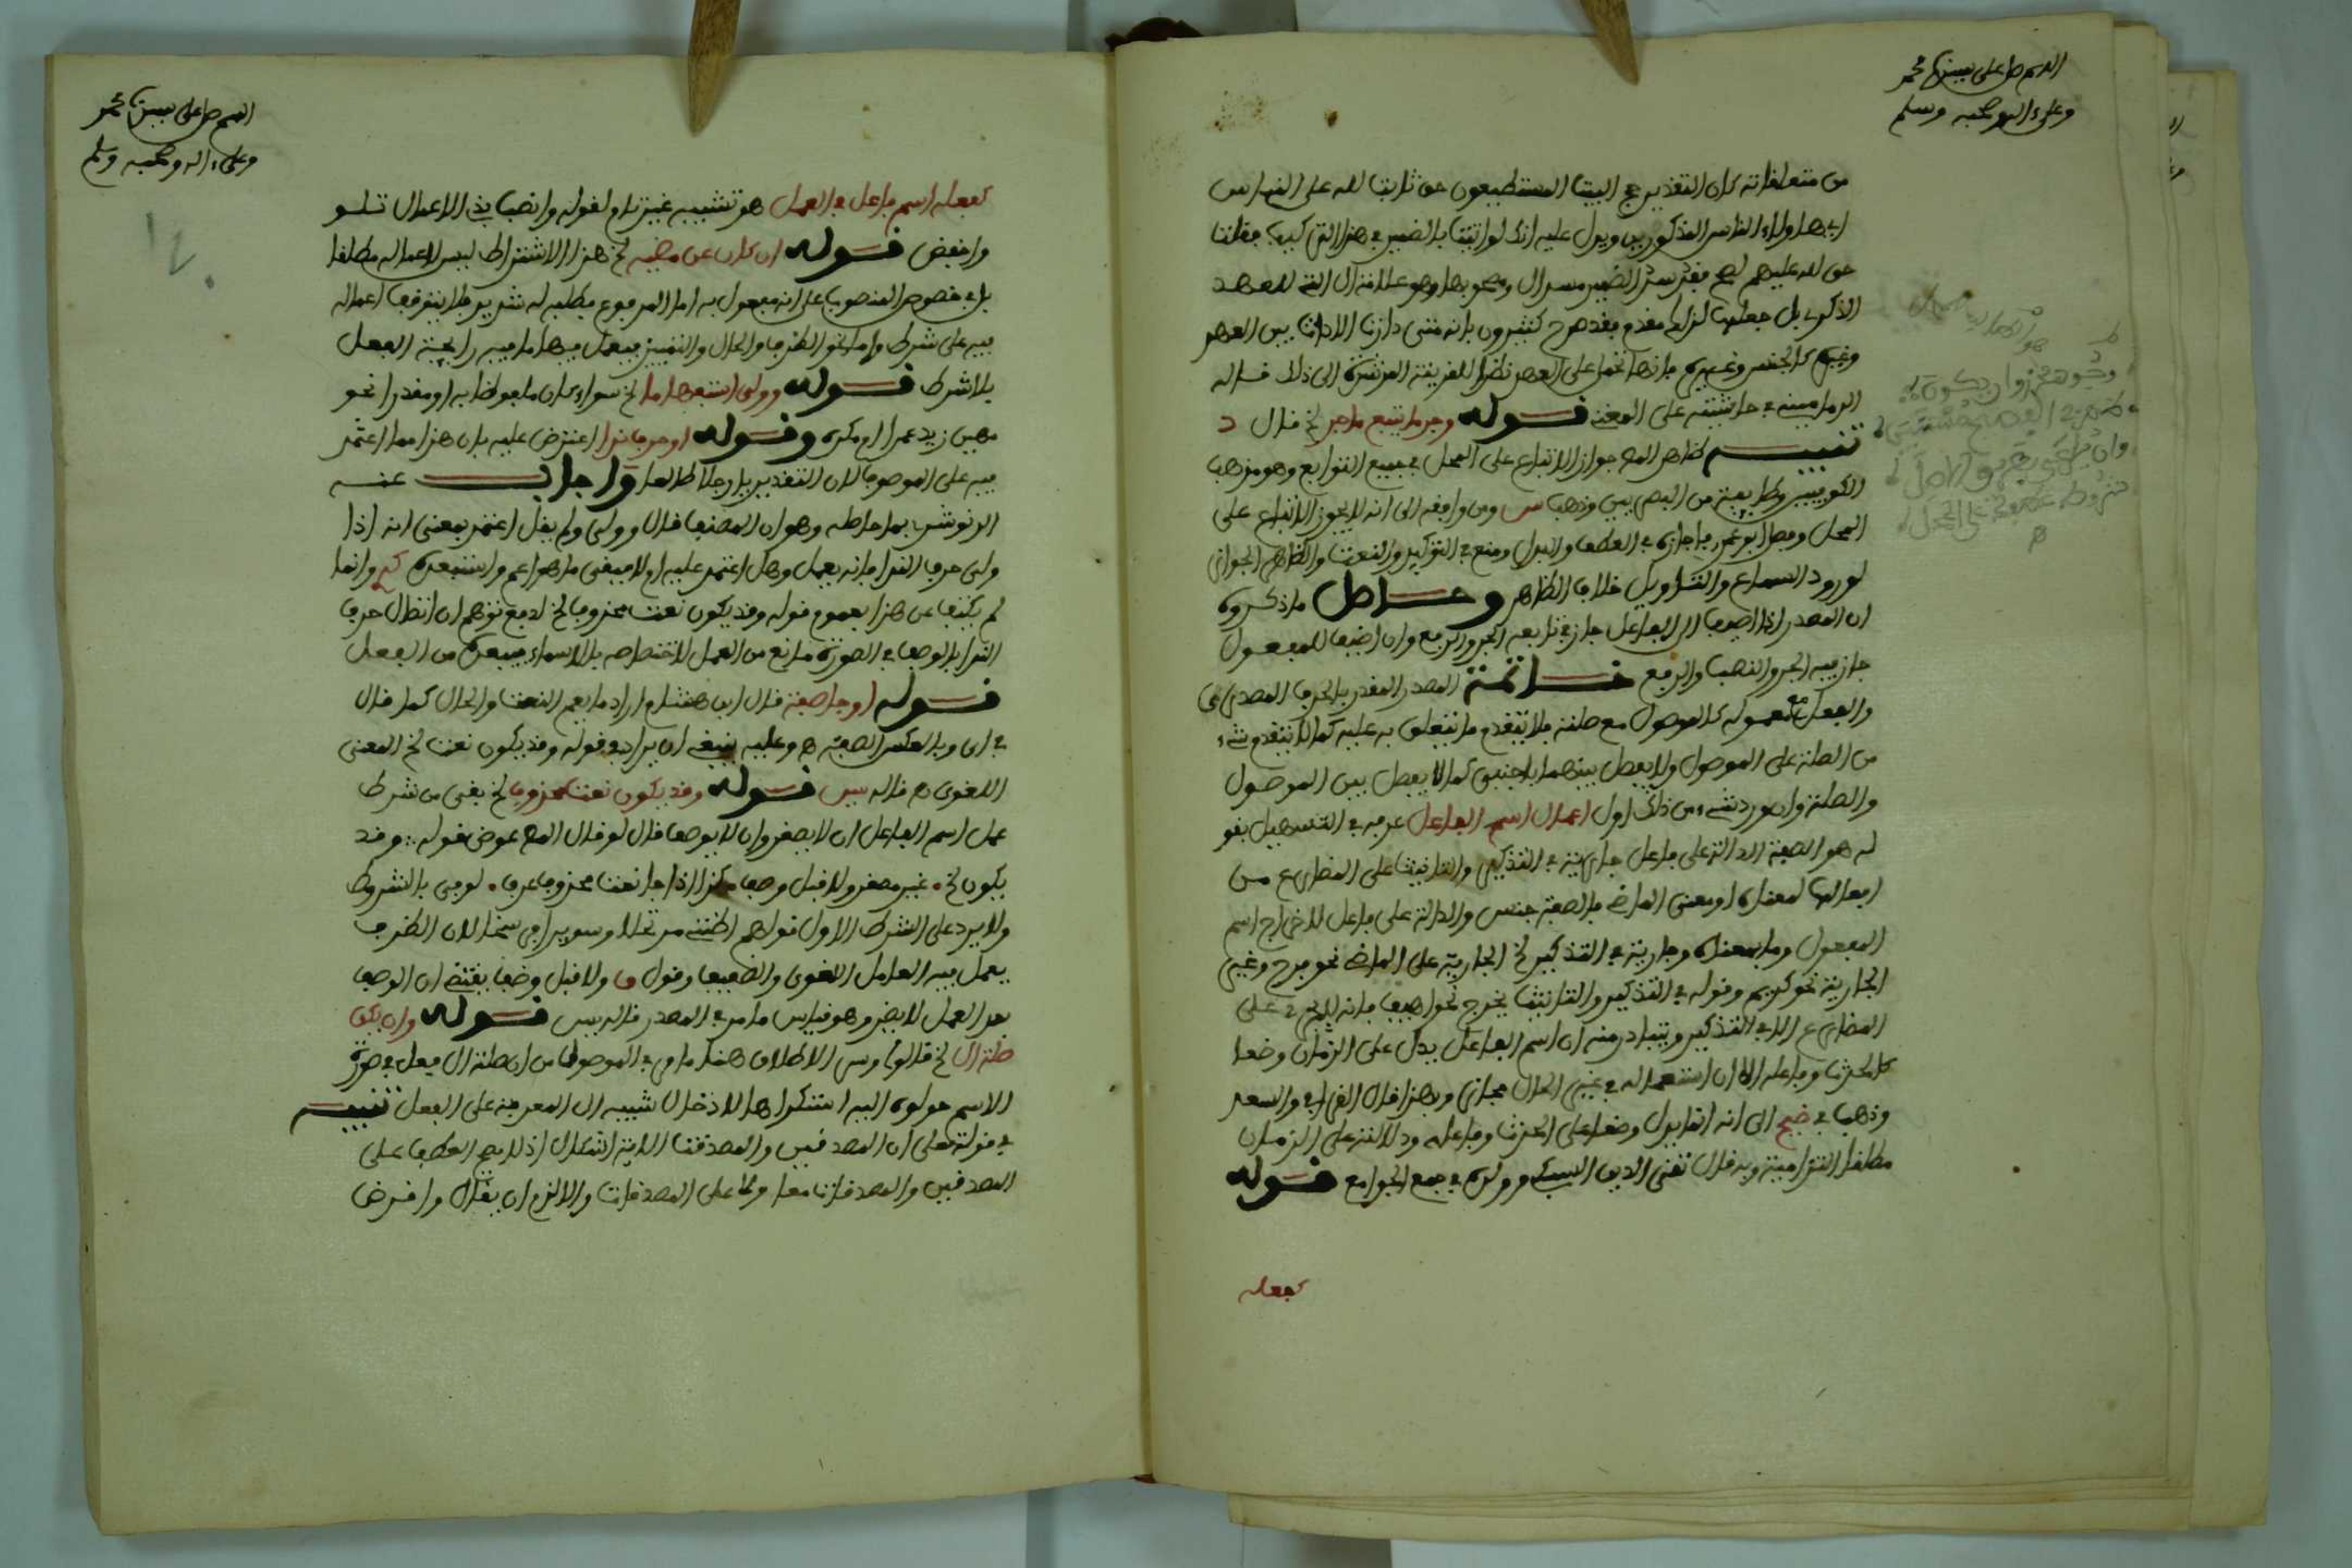 اللهم صل على سيدنا محمد
وعلى ءاله وصحبه وسلم
من متعلقاته كان التقدير حج البيت المستطيعون حق ثابت لله على الناس
اي هاولاء الناس المذكورين ويدل عليه انك لو اتيت بالضمير في هذا التركيب فقلت
حق لله عليهم لصح فقد سد الضمير مسد ال ومصحوبها وهو علامة ال التي للعهد
الذكري بل جعلها لذلك مقدم فقد صرح كثيرون بانه متى دارت الاداة بين العهد
وغيره كالجنس وغيره فانها تحمل على العهد نظرا للقرينة المرشدة الى ذلك قاله
الدماميني في حاشيته على المغني قوله وجر ما يتبع ما جر لخ قال د
تنبيه ظاهر المص جواز الاتباع على المحل في جميع التوابع وهو مذهب
الكوفيين وطايفة من البصريين وذهب س ومن وافقه الى انه لا يجوز الاتباع على
المحل وفصل ابو عمرو فاجازه في العطف والبدل ومنع في التوكيد والنعت والظاهر الجواز
لورود السماع والتاويل خلاف الظاهر وحاصل ما ذكروه
ان المصدر اذا اضيف الى الفاعل جاز في تابعه الجر والرفع وان اضيف للمفعول
جاز فيه الجر والنصب والرفع خاتمة المصدر المقدر بالحرف المصدري
والفعل مع معموله كالموصول مع صلته فلا يتقدم ما يتعلق به عليه كما لا يتقدم شيء
من الصلة على الموصول ولا يفصل بينهما باجنبي كما لا يفصل بين الموصول
والصلة وان ورد شيء من ذلك اول اعمال اسم الفاعل عرفه في التسهيل بقو
له هو الصفة الدالة على فاعل جارية في التذكير والتانيث على المضارع من
افعالها لمعناه او معنى الماضي فالصفة جنس والدالة على فاعل لاخراج اسم
المفعول وما بمعناه وجارية في التذكير لخ الجارية على الماضي نحو فرح وغير
الجارية نحو كريم وقوله في التذكير والتانيث يخرج نحو اهيف فانه لا يجري على
المضارع الا في التذكير ويتبادر منه ان اسم الفاعل يدل على الزمان وضعا
كالحدث وفاعله الا ان استعماله في غير الحال مجازي وبهذا قال القرافي والسعد
وذهب في ضيح الى انه انما يدل وضعا على الحدث وفاعله ودلالته على الزمان
مطلقا التزامية وبه قال تقي الدين السبكي وولده في جمع الجوامع قوله
كفعله
اللهم صل على سيدنا محمد
وعلى ءاله وصحبه وسلم
كفعله اسم فاعل في العمل هو تشبيه غير تام لقوله وانصب بذي الاعمال تلو
واخفض قوله ان كان عن مضيه لخ هذا الاشتراط ليس لاعماله مطلقا
بل في خصوص المنصوب على انه مفعول به اما المرفوع فطلبه له شديد فلا يتوقف اعماله
فيه على شرط واما نحو الظرف والحال والتمييز فيعمل فيها ما فيه رايحة الفعل
بلا شرط قوله وولي استفهاما لخ سواء كان ملفوظا به او مقدرا نحو
مهين زيد عمرا ام مكرمه وقوله او حرف ندا اعترض عليه بان هذا مما اعتمد
فيه على الموصوف لان التقدير يا رجلا طالعا واجاب عنه
الرنوشي بما حاصله وهو ان المصنف قال وولي ولم يقل اعتمد بمعنى انه اذا
ولي حرف الندا فانه يعمل وهل اعتمد عليه او لا فبقي ما هو اعم واستبعده وانما
لم يكتف عن هذا بعموم قوله وقد يكون نعت محذوف لخ لدفع توهم ان اتصال حرف
الندا بالوصف في الصورة مانع من العمل لاختصاصه بالاسماء فيبعده من الفعل
قوله او جا صفة قال ابن هشام اراد ما يعم النعت والحال كما قال
في ان وبالعكس الصفة هـ وعليه ينبغي ان يراد بقوله وقد يكون نعت لخ المعنى
اللغوي هـ قاله يس قوله وقد يكون نعت محذوف لخ بقي من شرط
عمل اسم الفاعل ان لا يصغر وان لا يوصف قال لو قال المص عوض قوله وقد
يكون لخ غير مصغر ولا قبل وصف كذا اذا جا نعت محذوف عرف لوفى بالشروط
ولا يرد على الشرط الاول قولهم اظنني مرتحلا وسويرا فرسخا لان الظرف
يعمل فيه العامل القوي والضعيف وقول ولا قبل وصف يقتضي ان الوصف
بعد العمل لا يضر وهو قياس ما مر في المصدر قاله يس قوله وان يكن
صلة ال لخ قالوا وسر الاطلاق هنا ما مر في الموصولات من ان صلة ال فعل في صورة
الاسم حولوه اليه استكراها لادخال شبيه ال المعرفة على الفعل تنبيه
في قوله تعلى ان المصدقين والمصدقات الاية اشكال اذ لا يصح العطف على
المصدقين والمصدقات معا ولا على المصدقات والا لزم ان يقال واقرض